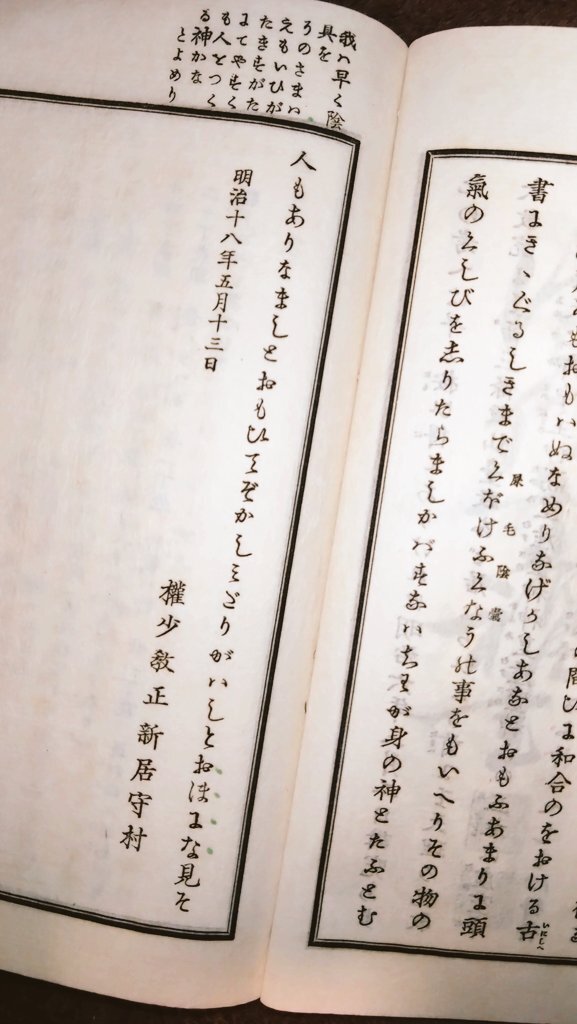 和合のをおける古
いにしへ
おもハぬなめりなげかしあなとおもふあまりに頭
書にきゝぐるしきまで
屎毛陰嚢
事をもいへりその物の
氣のくしびを志りたらましかバすなハちわが身の神とたふとむ
我ハ早く陰
具を
うのさまハ
えもいひが
たきすがた
にてやすく
も人をつく
る神かな
とよめり
人もありなましとおもひてぞかしみだりがハしとおほにな見そ
明治十八年五月十三日
權少教正新居守村